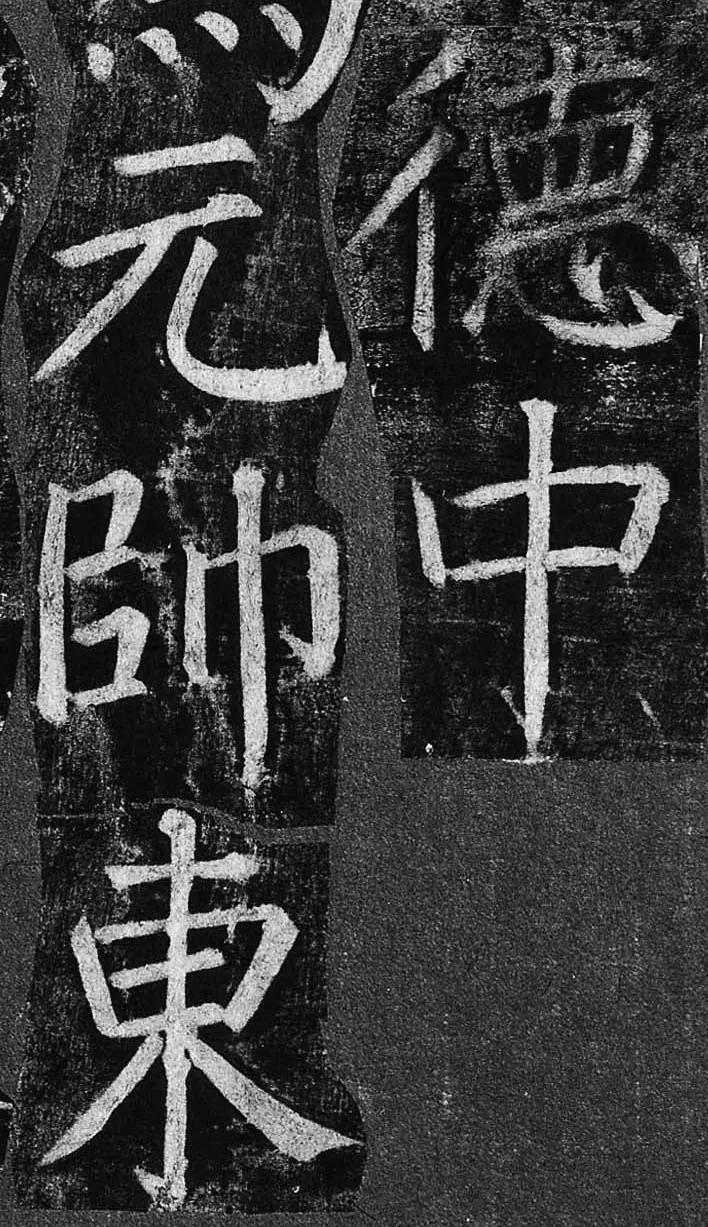 德中
元帥東